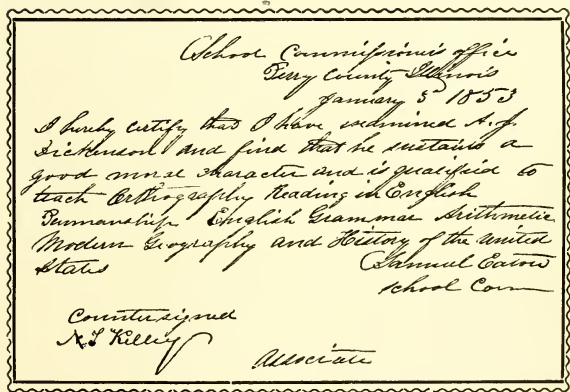 School Commissioners office
Perry County Illinois
January 3d 1853
I hereby certify that I have examined A. J.
Dickenson and find that he sustains a
good moral character and is qualified to
teach Orthography Reading in English
Penmanship English Grammar Arithmetic
Modern Geography and History of the United
States Samuel Eaton
School Com
Countersigned
Associate